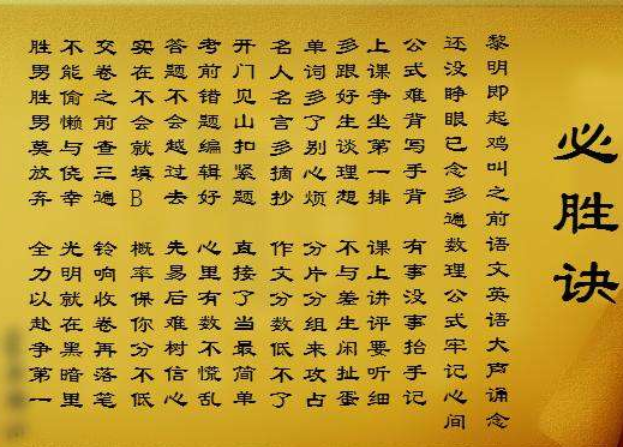 必胜诀
黎明即起鸡叫之前语文英语大声诵念
还没睁眼已念多遍数理公式牢记心间
公式难背写手背 有事没事抬手记
上课争坐第一排 课上讲评要听细
多跟好生谈理想 不与差生闲扯蛋
单词多了别心烦 分片分组来攻占
名人名言多摘抄 作文分数低不了
开门见山扣紧题 直接了当最简单
考前错题编辑好 心里有数不慌乱
答题不会越过去 先易后难树信心
实在不会就填B 概率保你分不低
交卷之前查三遍 铃响收卷再落笔
不能偷懒与侥幸 光明就在黑暗里
胜男胜男莫放弃 全力以赴争第一